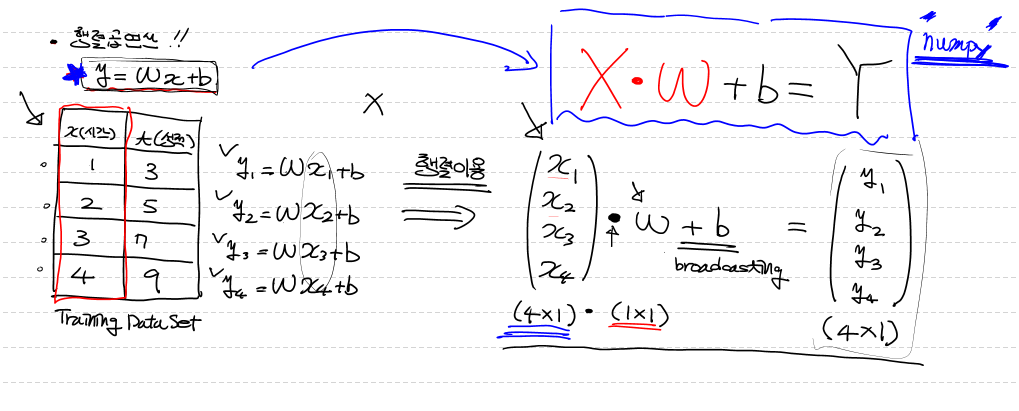 • 행렬곱연산 !!
★ y = Wx + b
x(시간) t(성적)
1 3
2 5
3 7
4 9
Training Data Set
y₁ = Wx₁ + b
y₂ = Wx₂ + b
y₃ = Wx₃ + b
y₄ = Wx₄ + b
X
행렬이용
⇒
X • W + b = Y
numpy
(x₁ x₂ x₃ x₄) • W + b = (y₁ y₂ y₃ y₄)
broadcasting
(4×1) • (1×1) (4×1)